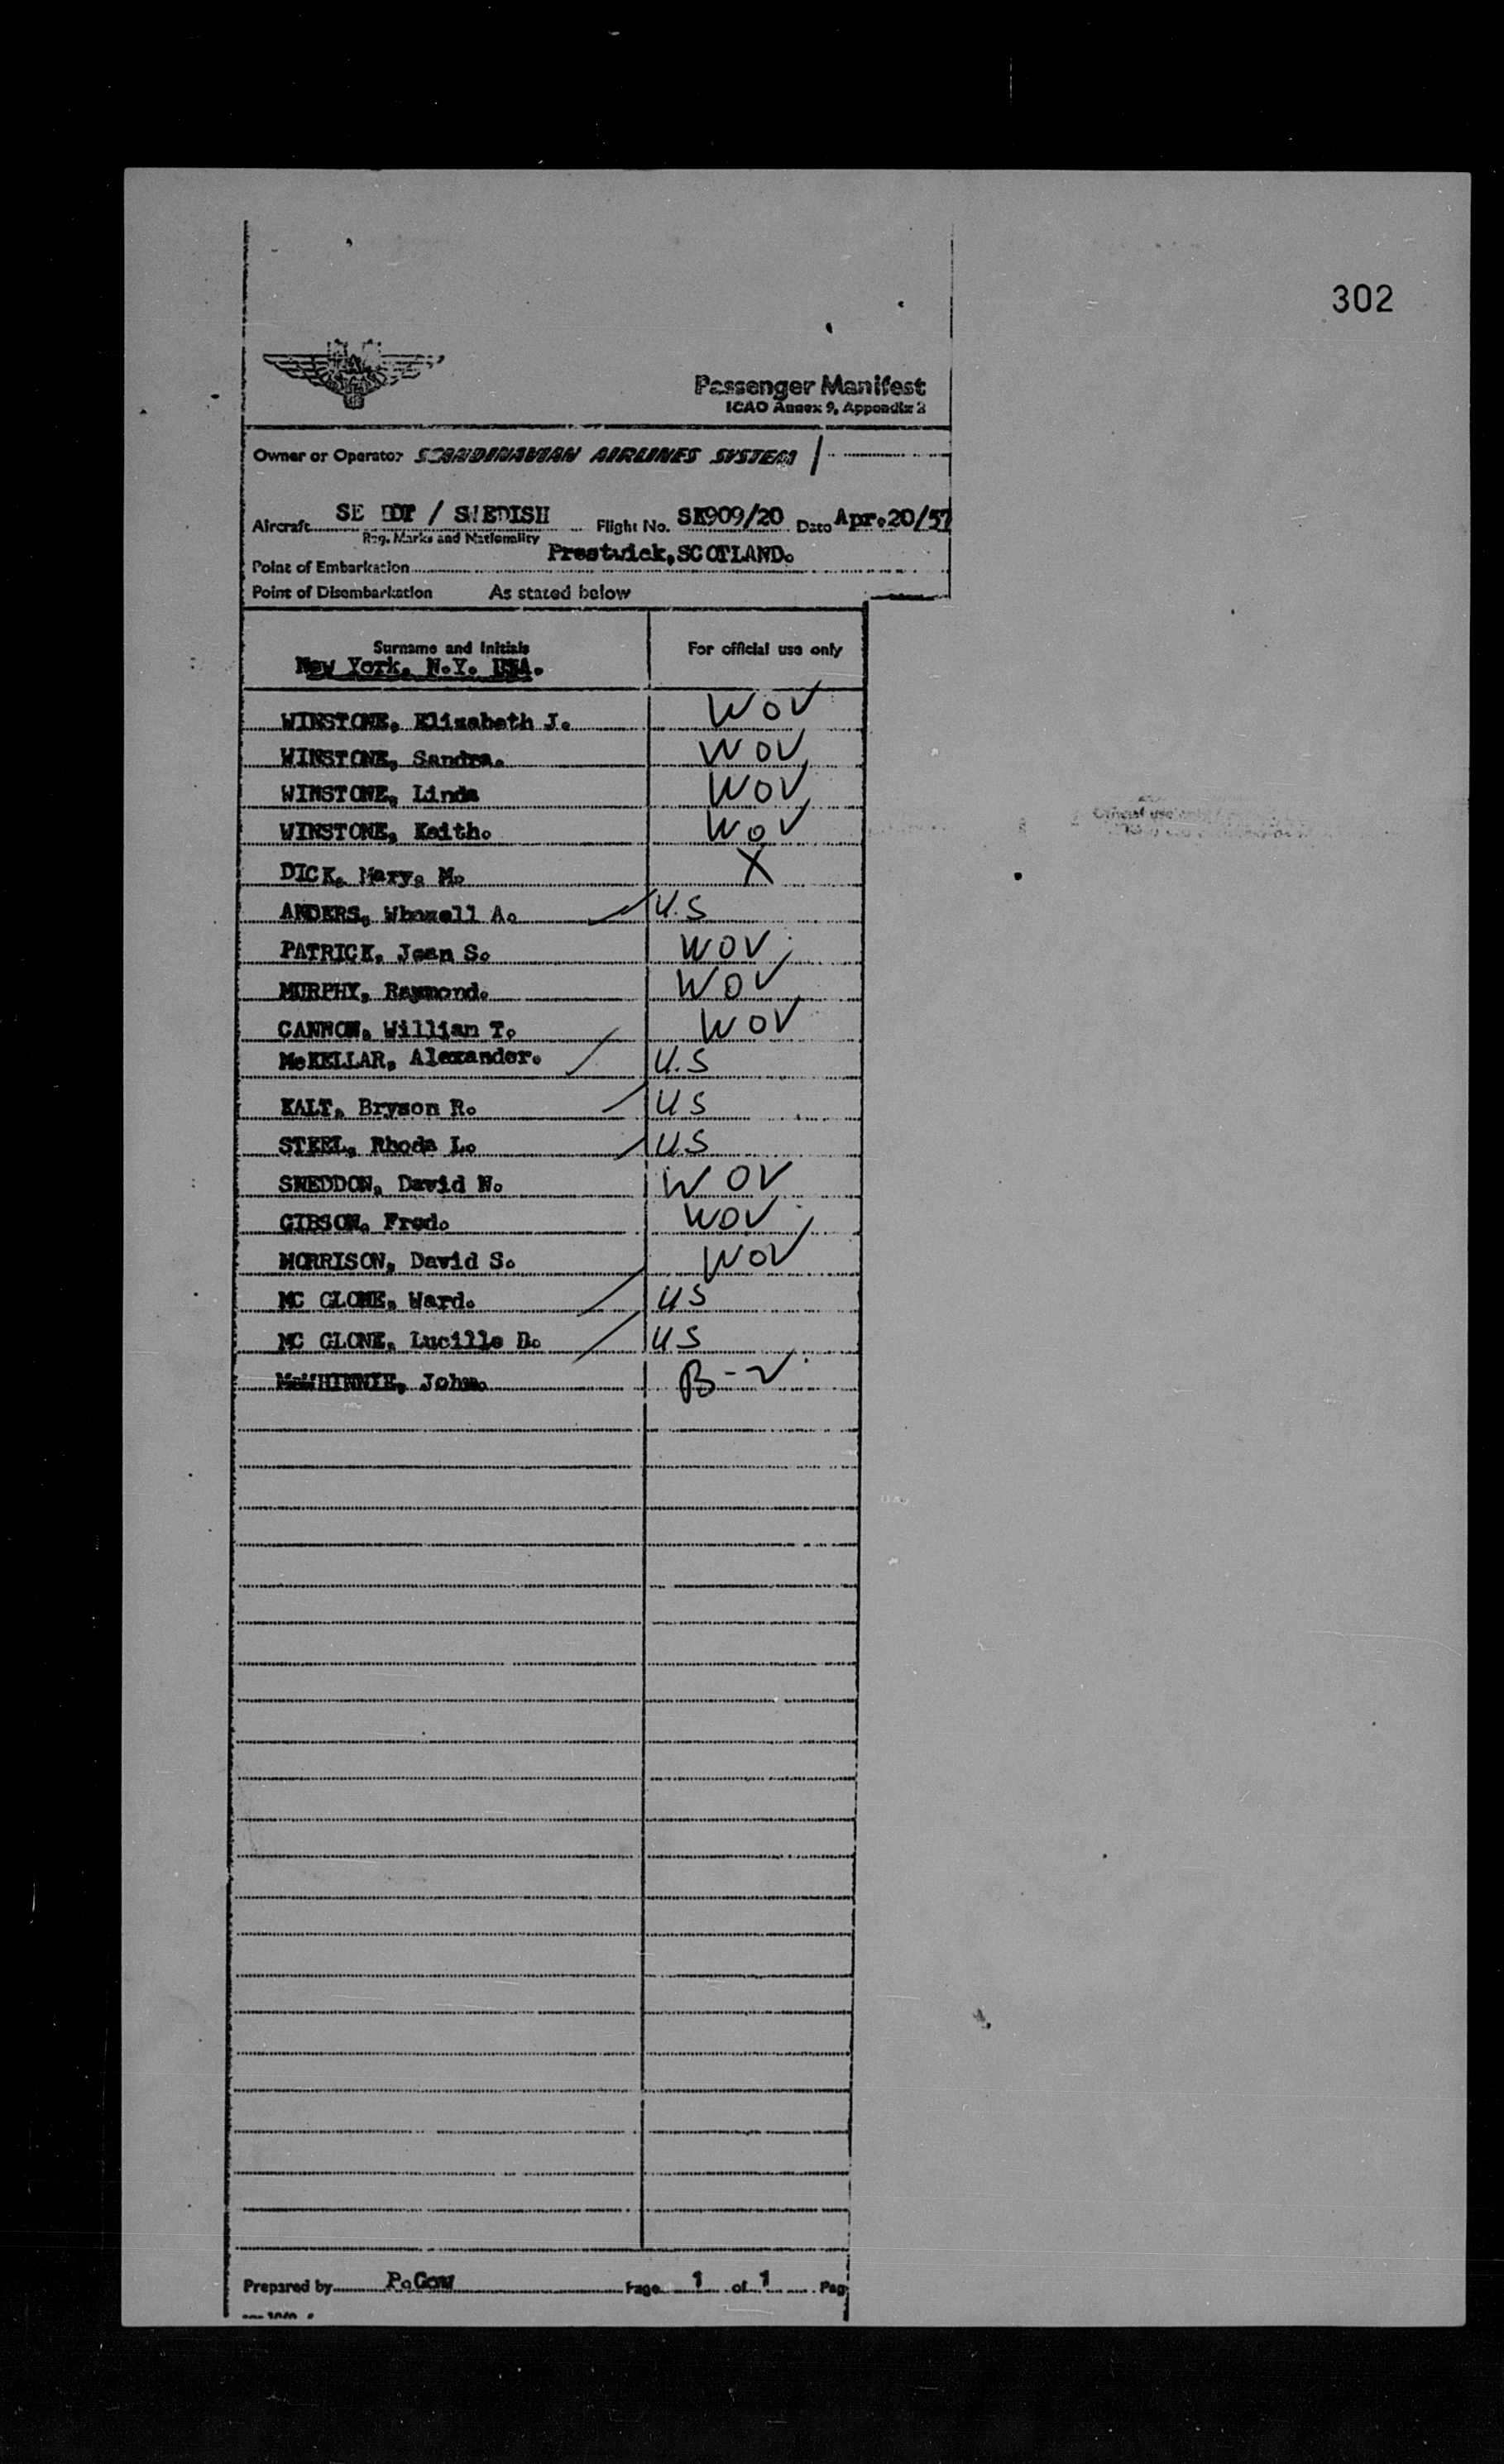 302
Passenger Manifest
ICAO Annex 9, Appendix 2
Owner or Operator SCANDINAVIAN AIRLINES SYSTEM
Aircraft SE / SWEDISH Flight No. SK909/20 Date Apr.20/57
Reg. Marks and Nationality
Point of Embarkation Prestwick, SCOTLAND.
Point of Disembarkation As stated below
Surname and Initials For official use only
New York. N.Y. USA.
WINSTONE, Elizabeth J. WOV
WINSTONE, Sandra. WOV
WINSTONE, Linda WOV
WINSTONE, Keith. WOV
DICK, Mary. M. X
ANDERS, A. U.S
PATRICK, Jean S. WOV
MURPHY, Raymond. WOV
CANNON, William T. WOV
McKELLAR, Alexander. U.S
KALT, Bryson R. US
STEEL, Rhoda L. U.S
SNEDDON, David N. WOV
GIBSON, Fred. WOV
MORRISON, David S. WOV
MC GLONE, Ward. US
MC GLONE, Lucille D. US
McWHINNIE, John. B-2
Prepared by P.Gow Page 1 of 1 Pag